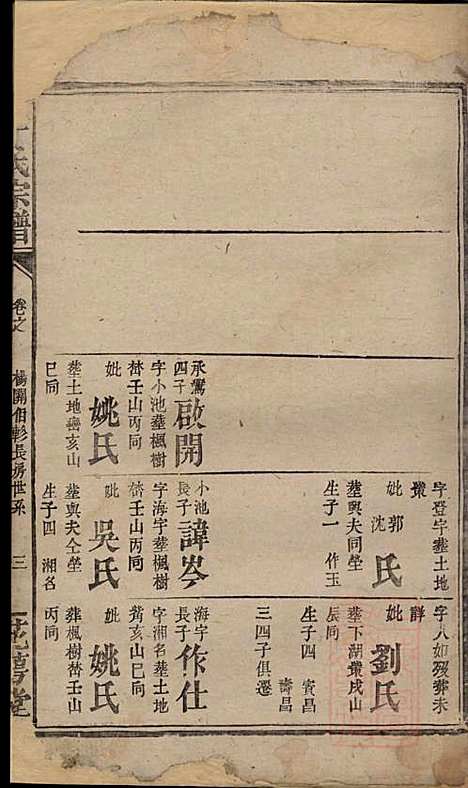 氏宗譜
卷之
楊開伯彰長房世系
三
字登宇葬土地
妣郭沈氏
塟與夫同塋
生子一 作玉
承鸞四子啟開
字小池塟楓樹
壬山丙同
妣姚氏
塟土地巒亥山
巳同
小池長子諱岑
字海宇葬楓樹
壬山丙同
妣吳氏
塟與夫仝塋
生子四 湘名
字人如殁葬未
詳
妣劉氏
塟下湖 戌山
辰同
生子四 賓昌
壽昌
三四子俱遷
海宇長子作仕
字湘名塟土地
亥山巳同
妣姚氏
葬楓樹 壬山
丙同